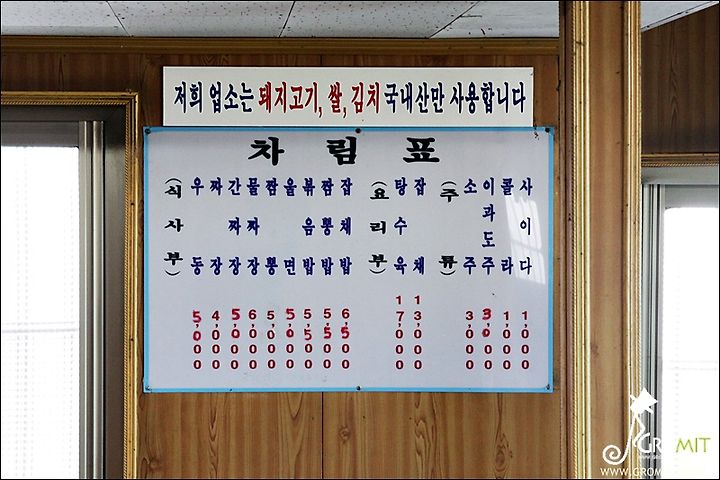 저희 업소는 돼지고기, 쌀, 김치 국내산만 사용합니다
차림표
(식사부)
우동 5,000
짜장 4,000
간짜장 5,000
물짜장 6,000
짬뽕 5,000
울면 5,000
볶음밥 5,500
짬뽕밥 5,500
잡채밥 6,500
(요리부)
탕수육 17,000
잡채 13,000
(주류)
소주 3,000
이과도주 3,000
콜라 1,000
사이다 1,000
GROMIT